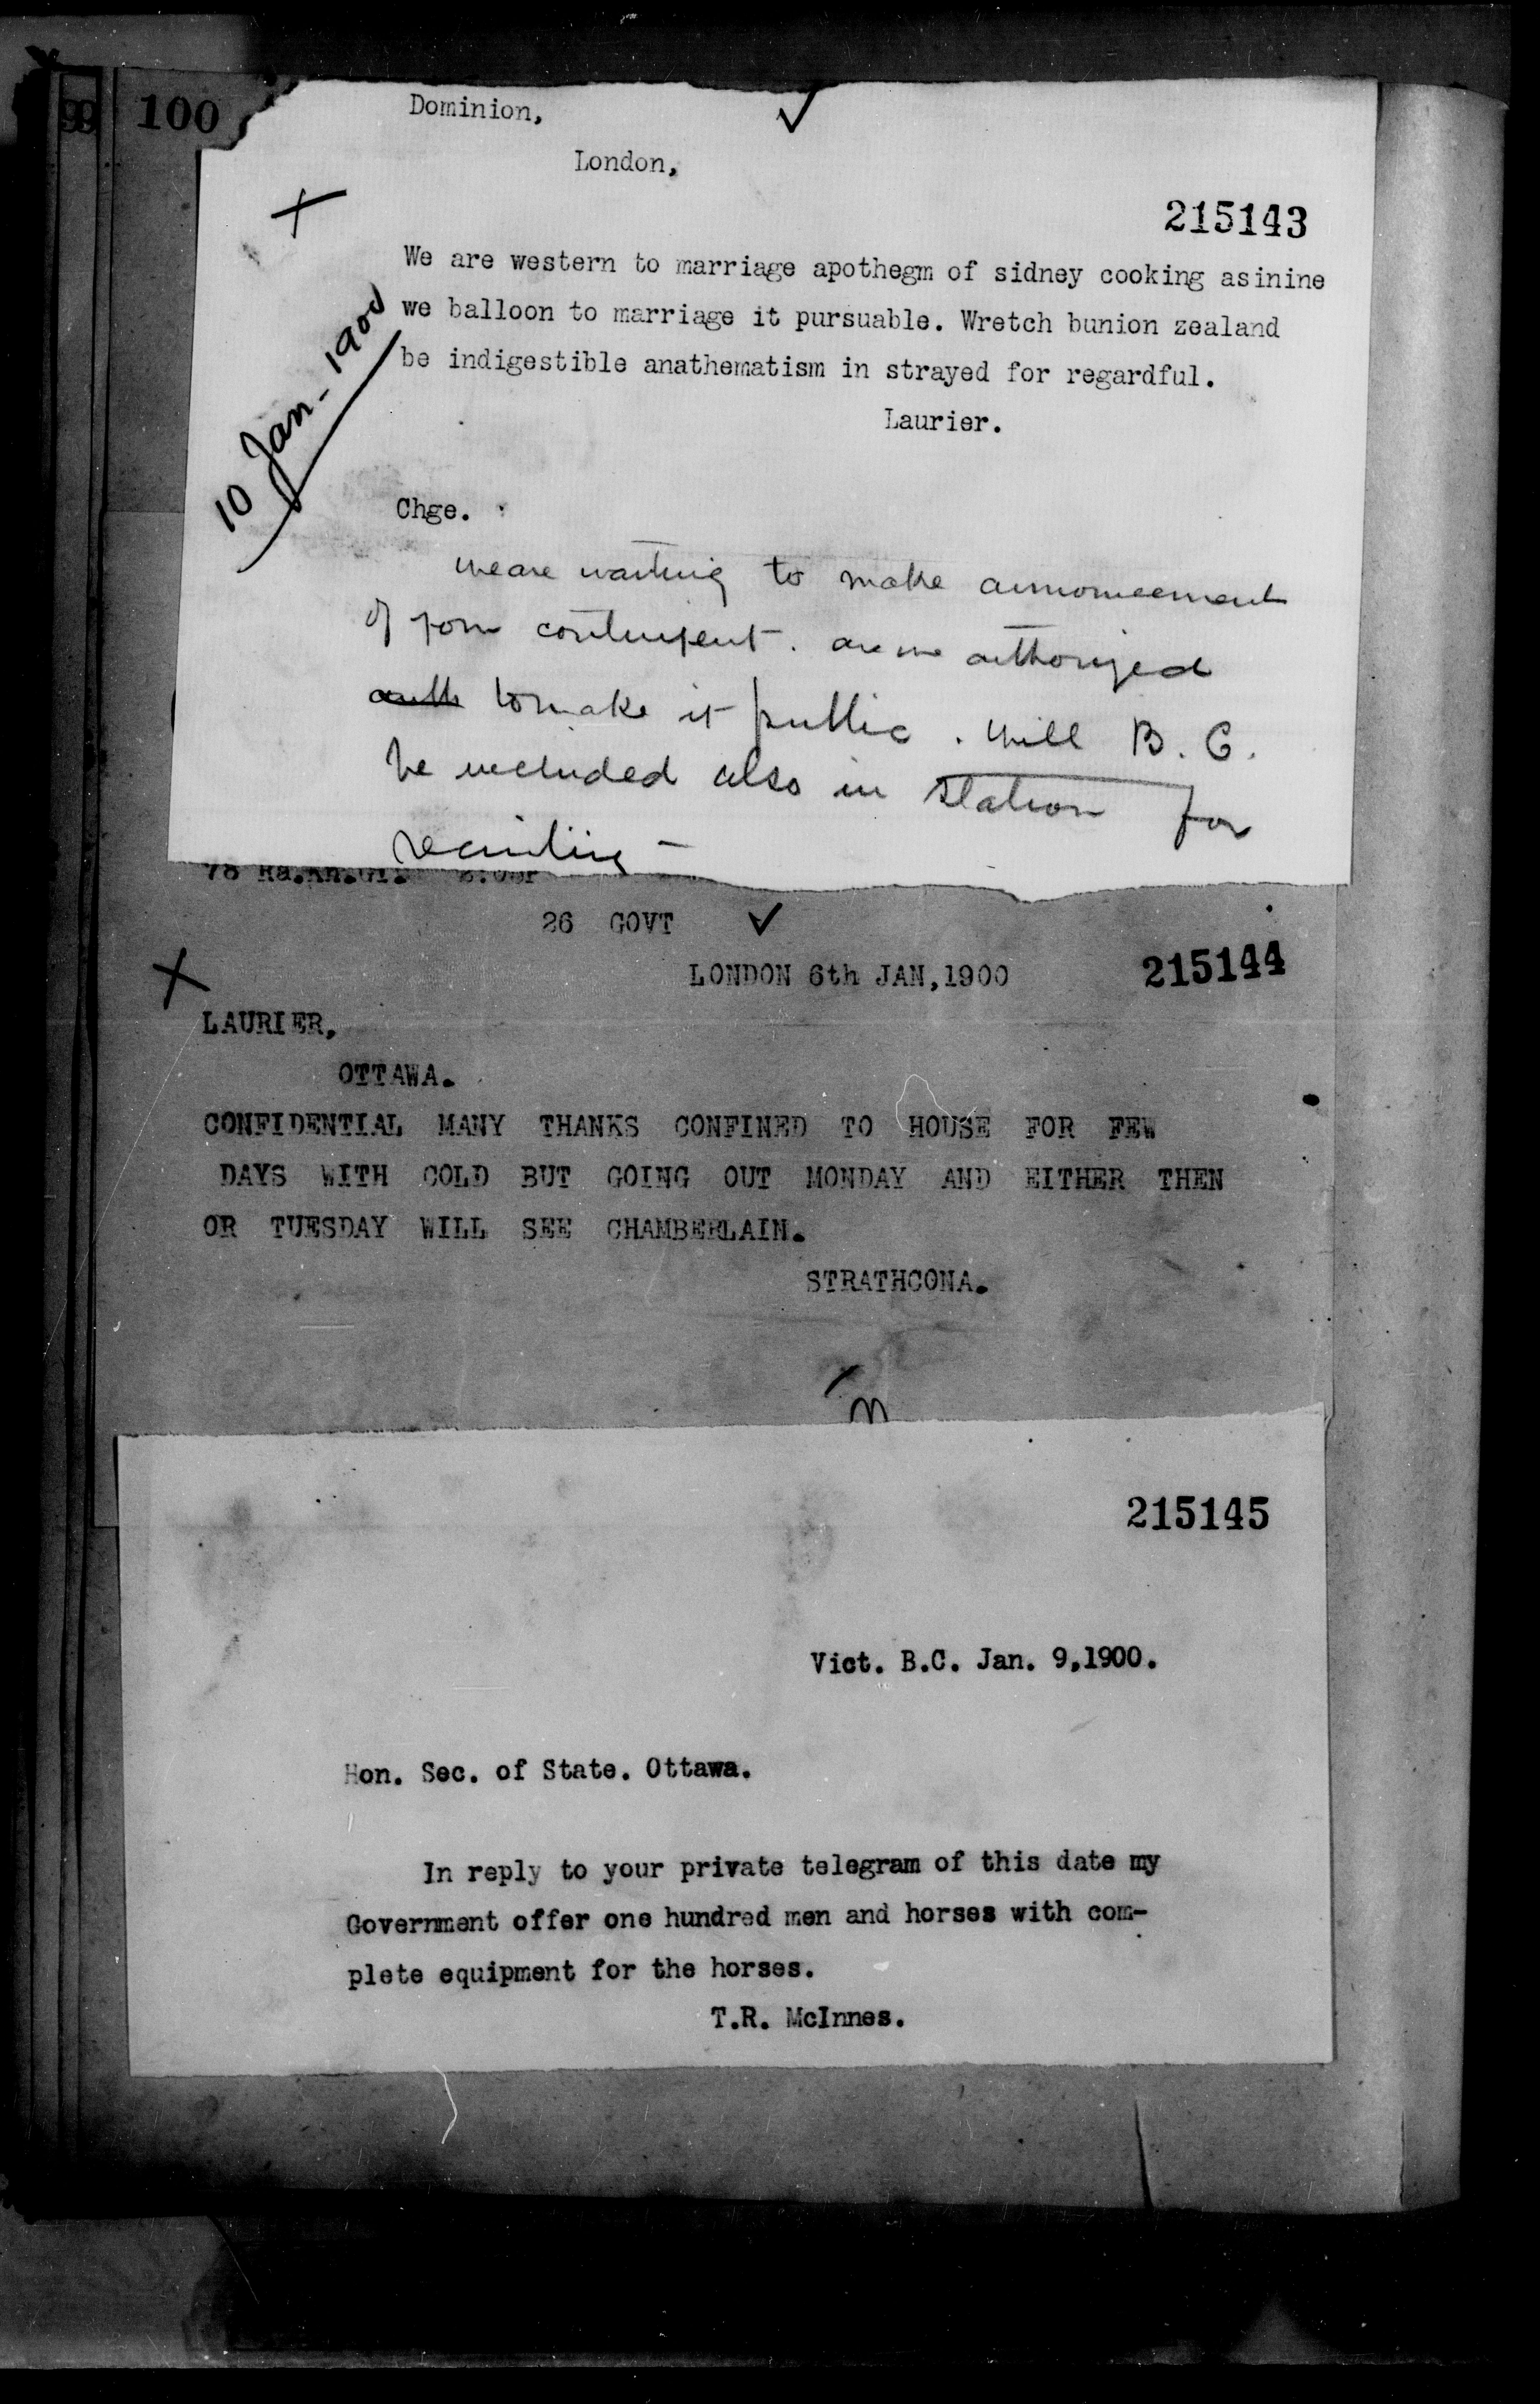 99 100
Dominion,
London,
215143
We are western to marriage apothegm of sidney cooking asinine
we balloon to marriage it pursuable. Wretch bunion zealand
be indigestible anathematism in strayed for regardful.
Laurier.
10 Jan- 1900
Chge.
We are waiting to make announcement
of your contingent. are we authorized
auth to make it public. Will B. C.
be included also in station for
recruiting -
26 GOVT
LONDON 6th JAN,1900
215144
LAURIER,
OTTAWA.
CONFIDENTIAL MANY THANKS CONFINED TO HOUSE FOR FEW
DAYS WITH COLD BUT GOING OUT MONDAY AND EITHER THEN
OR TUESDAY WILL SEE CHAMBERLAIN.
STRATHCONA.
215145
Vict. B.C. Jan. 9,1900.
Hon. Sec. of State. Ottawa.
In reply to your private telegram of this date my
Government offer one hundred men and horses with com-
plete equipment for the horses.
T.R. McInnes.